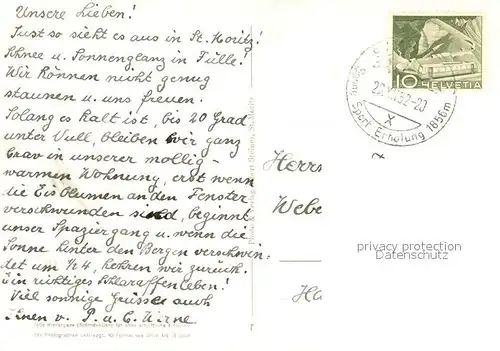 Unsere Lieben!
Just so sieht es aus in St. Moritz!
Schnee u. Sonnenglanz in Fülle!
Wir können nicht genug
staunen u. uns freuen.
Solang es kalt ist, bis 20 Grad
unter Null, bleiben wir ganz
brav in unserer mollig-
warmen Wohnung, erst wenn
die Eisblumen an den Fenster
verschwunden sind, beginnt
unser Spaziergang u. wenn die
Sonne hinter den Bergen verschwin-
det um ¼4, kehren wir zurück.
Ein richtiges Schlaraffenleben!
Viel sonnige Grüsse auch
Ihnen v. P. u. C.
10 HELVETIA
Sport Erholung 1856m
X
Herrn
Webe
Ha
privacy protection
Datenschutz